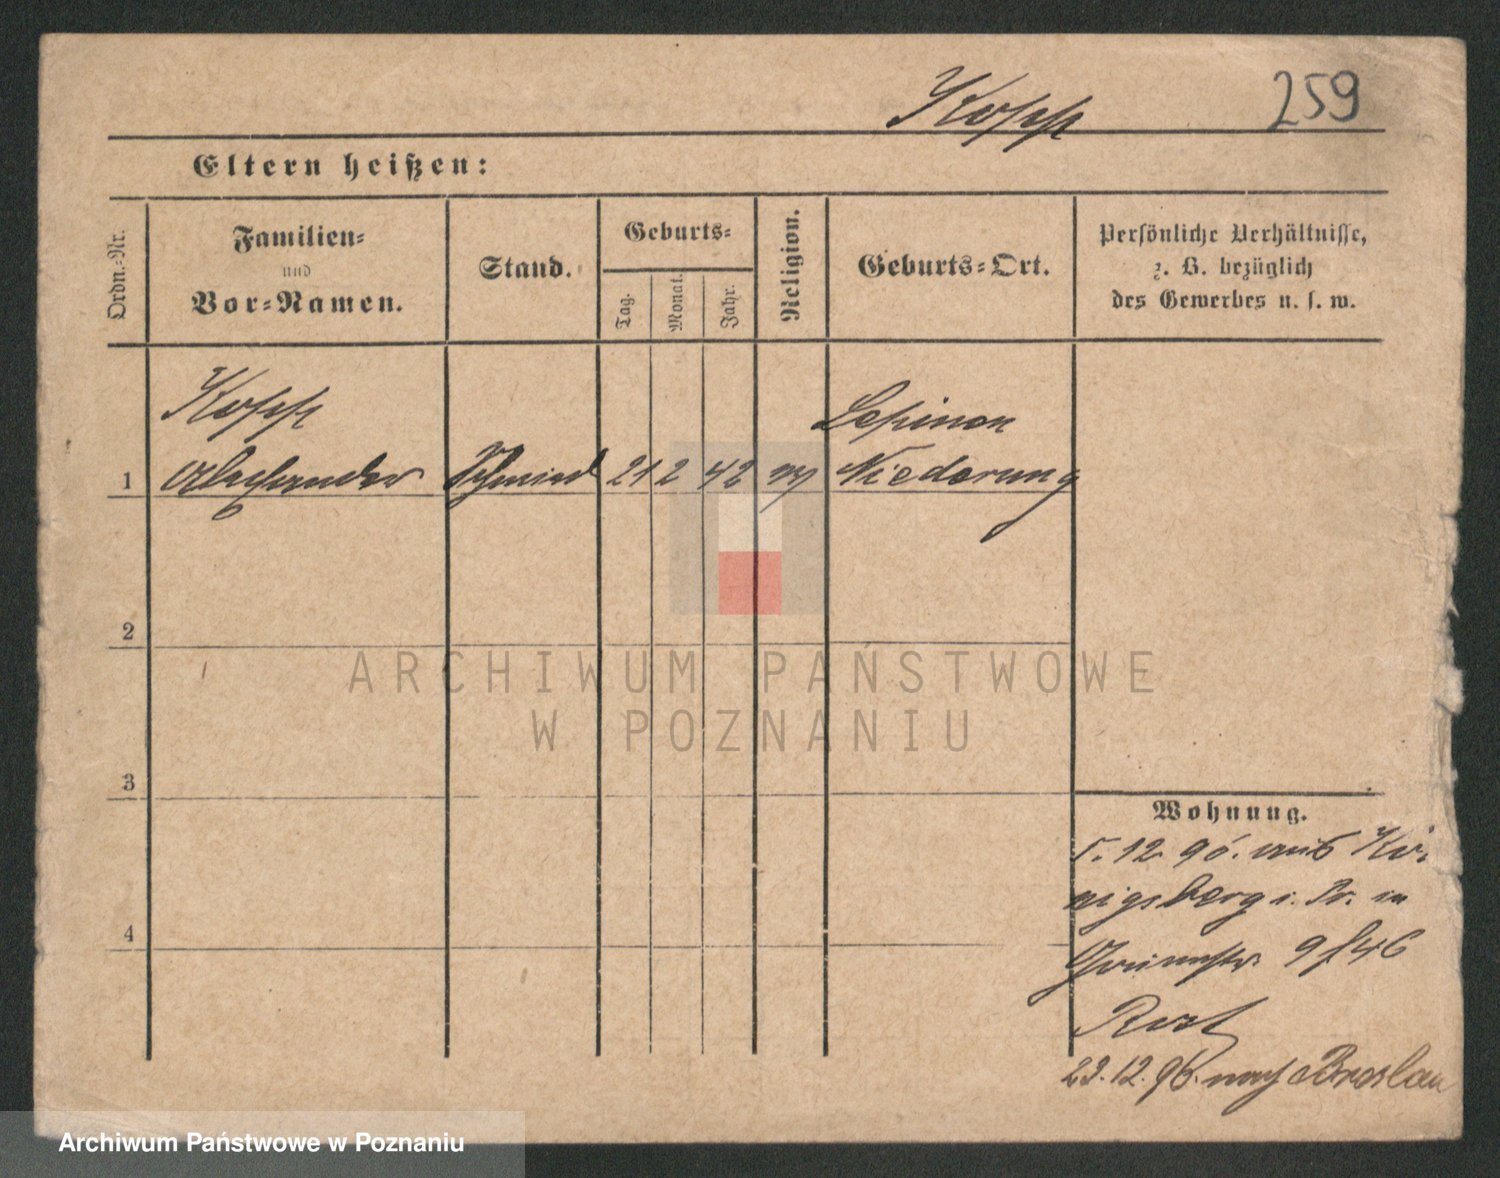 Kopp 259
Eltern heißen:
Ordn.-Nr.
Familien-
und
Vor-Namen.
Stand.
Geburts-
Tag.
Monat.
Jahr.
Religion.
Geburts-Ort.
Persönliche Verhältnisse,
z. B. bezüglich
des Gewerbes u. s. w.
Kopp
1 Alexander Schmied 21 2 42 Niederung
2
3
4
Wohnung.
5. 12. 96. aus Kö-
nigsberg i. Pr. in
9
23. 12. 96. nach Breslau
ARCHIWUM PAŃSTWOWE
W POZNANIU
Archiwum Państwowe w Poznaniu